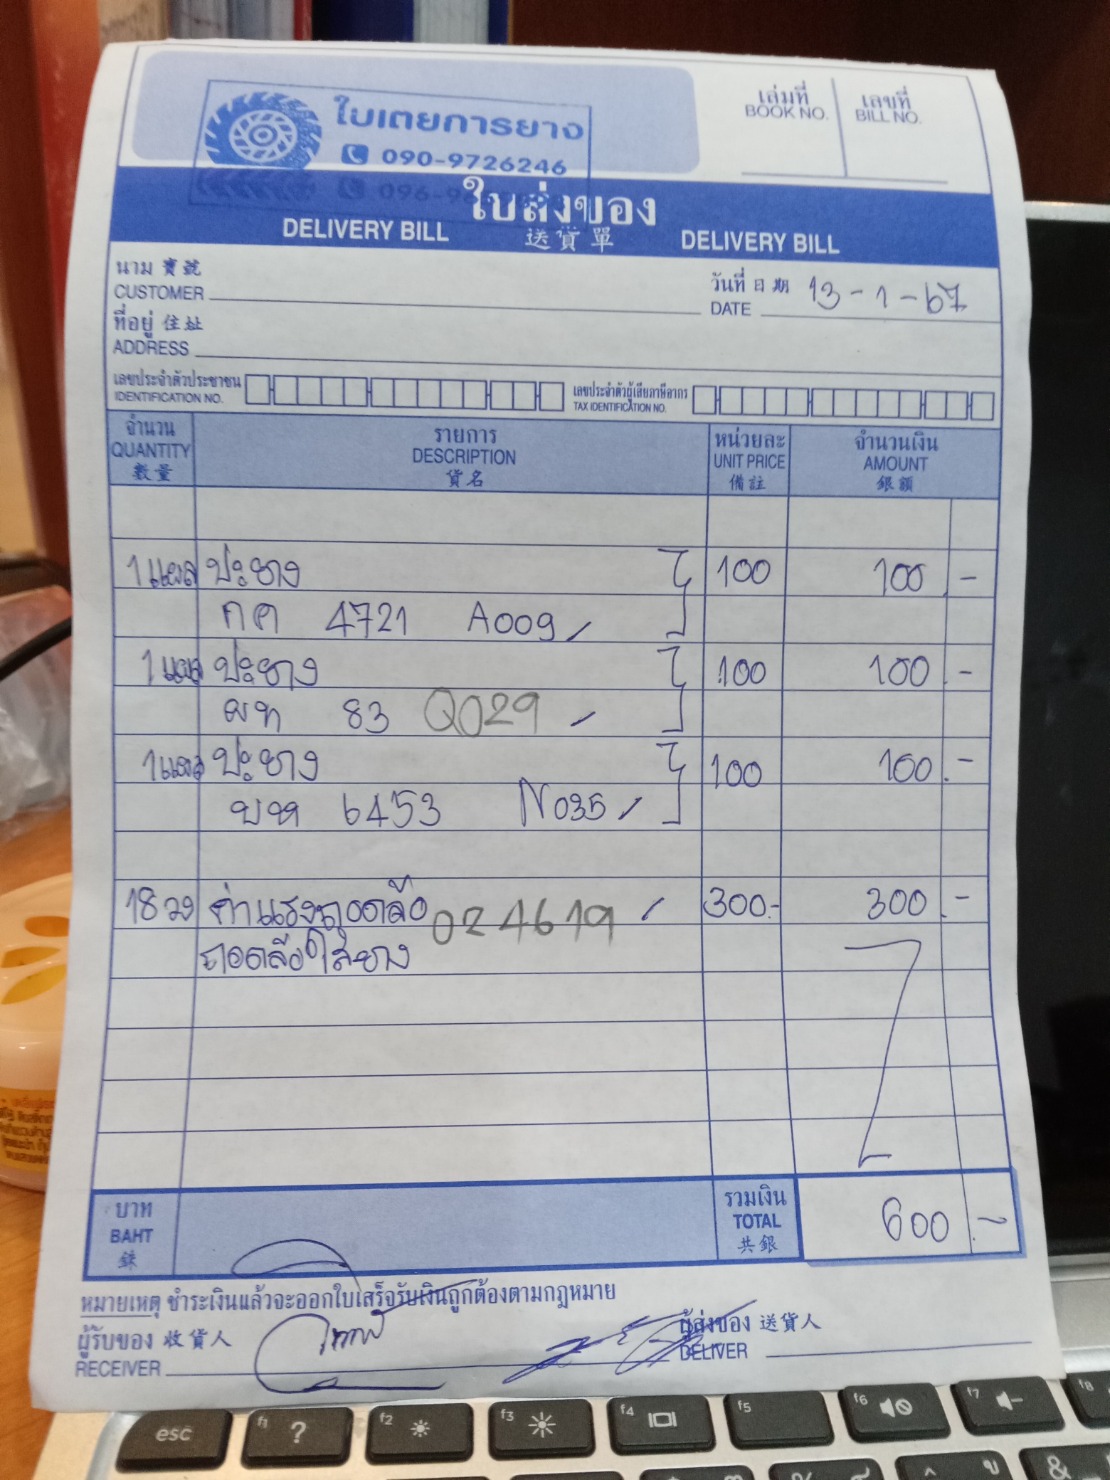 ใบเตยการยาง
090-9726246
เล่มที่
BOOK NO.
เลขที่
BILL NO.
ใบส่งของ
DELIVERY BILL 送貨單 DELIVERY BILL
นาม 寶號
CUSTOMER
วันที่ 日期 13-1-67
DATE
ที่อยู่ 住址
ADDRESS
เลขประจำตัวประชาชน
IDENTIFICATION NO.
เลขประจำตัวผู้เสียภาษีอากร
TAX IDENTIFICATION NO.
จำนวน รายการ หน่วยละ จำนวนเงิน
QUANTITY DESCRIPTION UNIT PRICE AMOUNT
數量 貨名 備註 銀額
1 แผล ปะยาง 100 100 -
กค 4721 A009
1 แผล ปะยาง 100 100 -
ผท 83 Q029
1 แผล ปะยาง 100 100 -
บห 6453 N035
18 วง ค่าแรงถอดล้อ 024619 300.- 300 -
ถอดล้อใส่ยาง
บาท รวมเงิน
BAHT TOTAL 600 -
銖 共銀
หมายเหตุ ชำระเงินแล้วจะออกใบเสร็จรับเงินถูกต้องตามกฎหมาย
ผู้รับของ 收貨人
RECEIVER
ผู้ส่งของ 送貨人
DELIVER
esc
f1 ?
f2
f3
f4
f5
f6
f7
f8
&